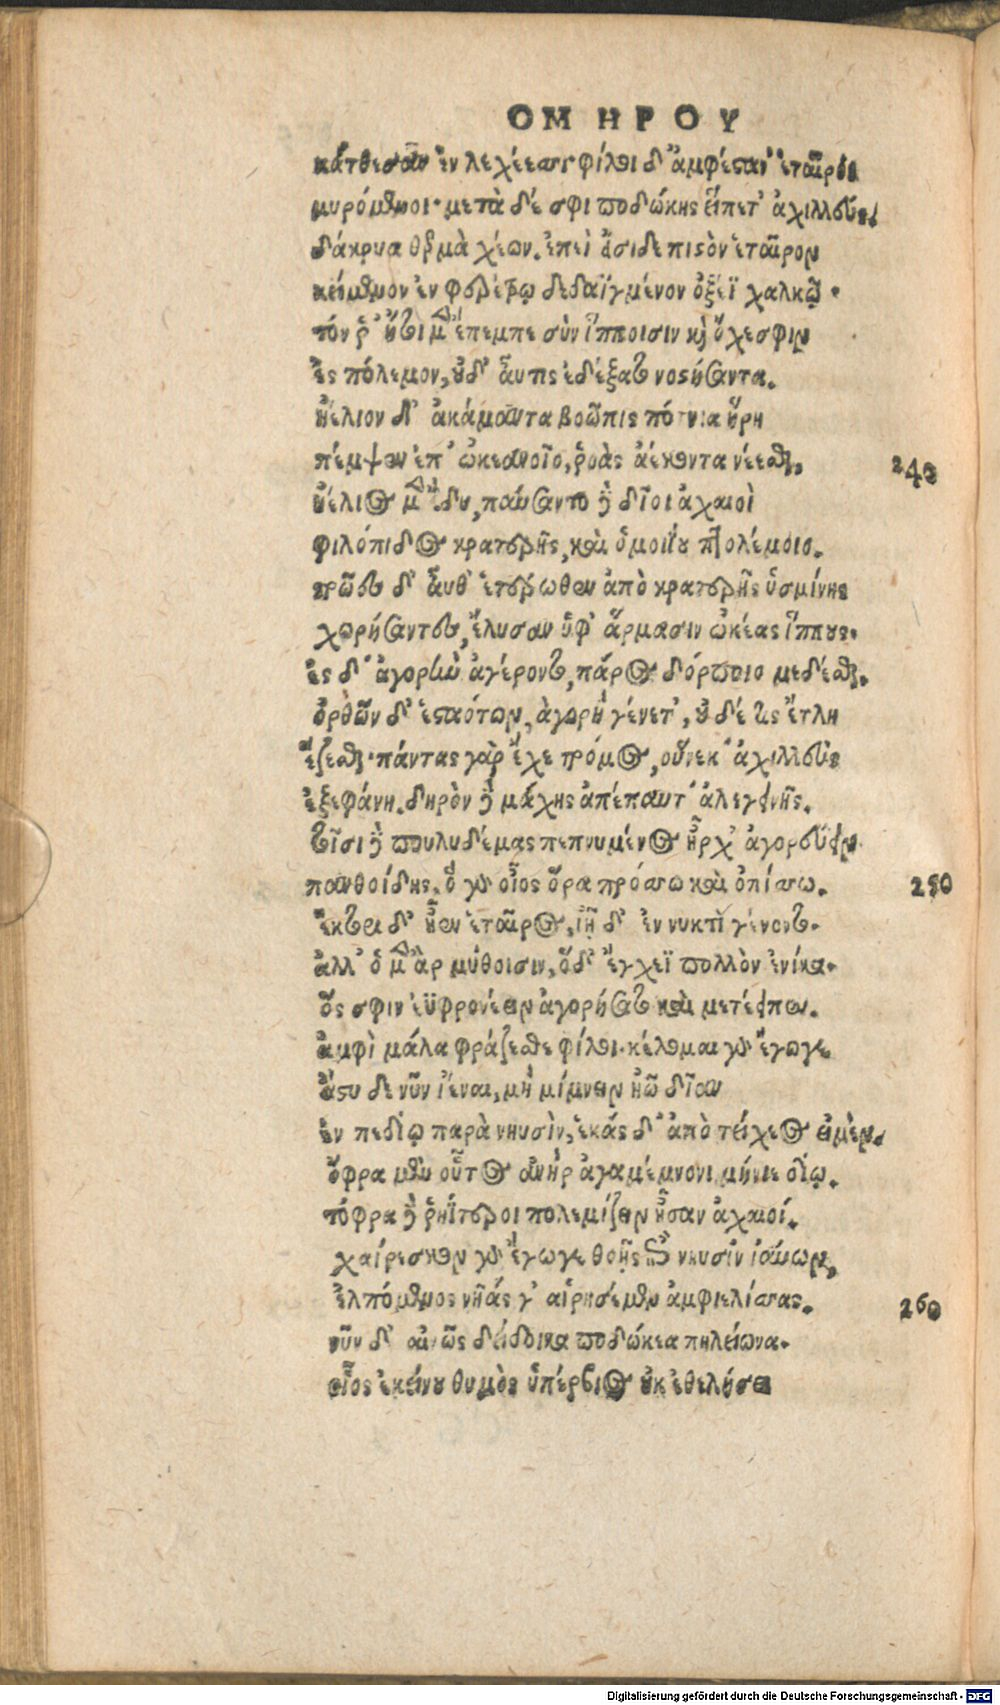 ΟΜΗΡΟΥ
κάτθεσαν ἐν λεχέεσσι· φίλοι δ' ἀμφέσταν ἑταῖροι
μυρόμενοι· μετὰ δέ σφι ποδώκης εἵπετ' ἀχιλλεύς,
δάκρυα θερμὰ χέων. ἐπεὶ εἴσιδε πιστὸν ἑταῖρον
κείμενον ἐν φερέτρῳ δεδαϊγμένον ὀξέϊ χαλκῷ.
τόν ῥ' ἤτοι μὲν ἔπεμπε σὺν ἵπποισιν καὶ ὄχεσφιν
ἐς πόλεμον, οὐδ' αὖτις ἐδέξατο νοστήσαντα.
ἠέλιον δ' ἀκάμαντα βοῶπις πότνια ἥρη
πέμψεν ἐπ' ὠκεανοῖο, ῥοὰς ἀέκοντα νέεσθαι, 240
ἠέλιος μὲν ἔδυ, παύσαντο δὲ δῖοι ἀχαιοὶ
φιλόπιδος κρατερῆς, καὶ ὁμοιΐου πτολέμοιο.
τρῶες δ' αὖθ' ἑτέρωθεν ἀπὸ κρατερῆς ὑσμίνης
χωρήσαντες, ἔλυσαν ὑφ' ἅρμασιν ὠκέας ἵππους.
ἐς δ' ἀγορὴν ἀγέροντο, πάρος δόρποιο μεδέσθαι.
ὀρθῶν δ' ἑσταότων, ἀγορὴ γένετ', οὐδέ τις ἔτλη
ἕζεσθαι· πάντας γὰρ ἔχε τρόμος, οὕνεκ' ἀχιλλεὺς
ἐξεφάνη. δηρὸν δὲ μάχης ἀπέπαυτ' ἀλεγεινῆς.
τοῖσι δὲ πουλυδάμας πεπνυμένος ἦρχ' ἀγορεύειν
πανθοίδης. ὁ γὰρ οἶος ὅρα πρόσσω καὶ ὀπίσσω. 250
ἕκτορι δ' ἦεν ἑταῖρος, ἰῇ δ' ἐν νυκτὶ γένοντο.
ἀλλ' ὁ μὲν ἂρ μύθοισιν, ὅδ' ἔγχεϊ πολλὸν ἐνίκα.
ὅς σφιν ἐϋφρονέων ἀγορήσατο καὶ μετέειπεν.
ἀμφὶ μάλα φράζεσθε φίλοι· κέλομαι γὰρ ἔγωγε
ἄστυ δε νῦν ἰέναι, μὴ μίμνειν ἠῶ δῖαν
ἐν πεδίῳ παρὰ νηυσὶν, ἑκὰς δ' ἀπὸ τείχεος εἰμέν.
ὄφρα μὲν οὗτος ἀνὴρ ἀγαμέμνονι μήνιε δίῳ.
τόφρα δὲ ῥηΐτεροι πολεμίζειν ἦσαν ἀχαιοί.
χαίρεσκον γὰρ ἔγωγε θοῇς ἐπὶ νηυσὶν ἰαύων,
ἐλπόμενος νῆάς γ' αἱρησέμεν ἀμφιελίσσας. 260
νῦν δ' αἰνῶς δείδοικα ποδώκεα πηλείωνα.
οἷος ἐκείνου θυμὸς ὑπέρβιος οὐκ ἐθελήσει
Digitalisierung gefördert durch die Deutsche Forschungsgemeinschaft - DFG